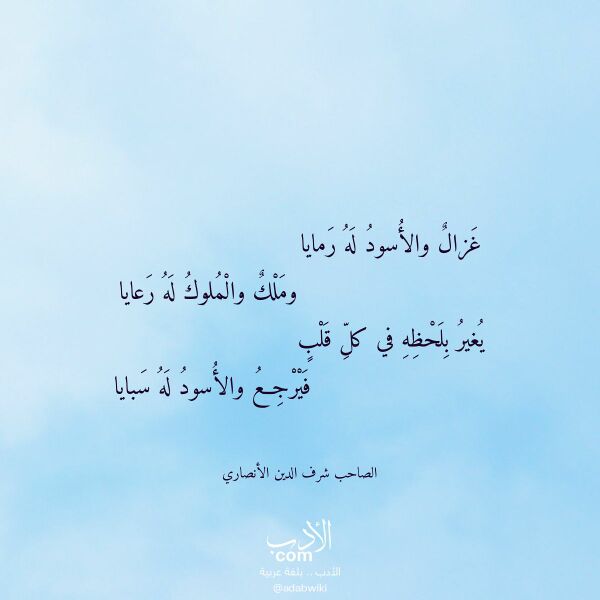 غَزالٌ والأُسودُ لَهُ رَمايا
ومَلْكٌ والْمُلوكُ لَهُ رَعايا
يُغيرُ بِلَحْظِهِ في كلِّ قَلْبٍ
فَيَرْجِعُ والأُسودُ لَهُ سَبايا
الصاحب شرف الدين الأنصاري
الأدب
.com
الأدب .. بلغة عربية
@adabwiki